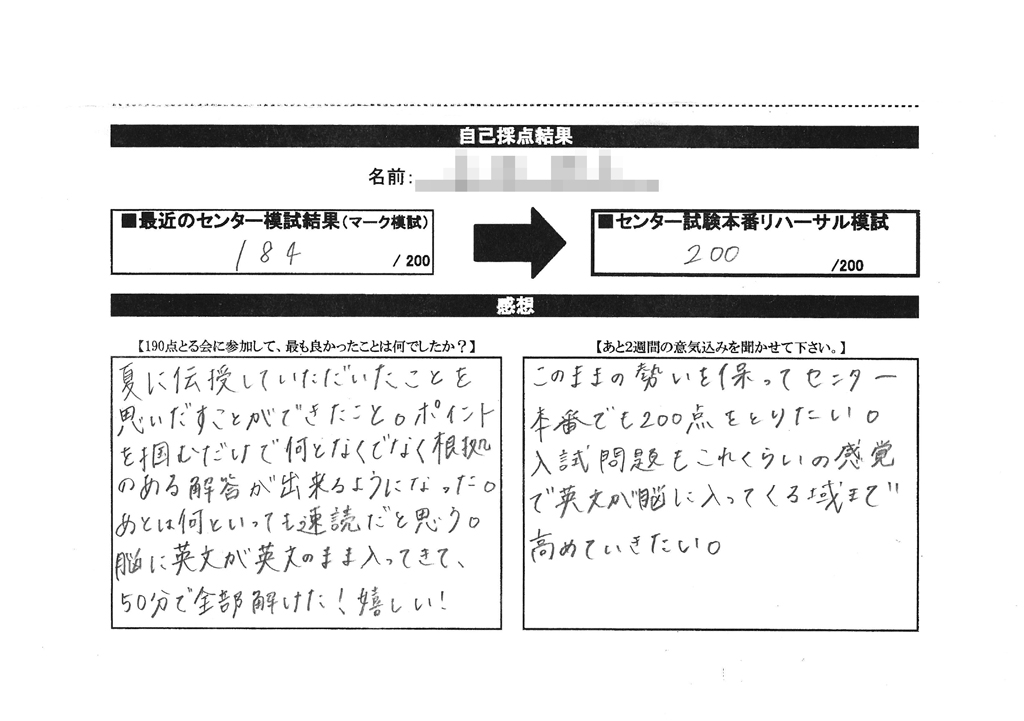 自己採点結果
名前:
■最近のセンター模試結果(マーク模試)
184
/ 200
■センター試験本番リハーサル模試
200
/200
感想
【190点とる会に参加して、最も良かったことは何でしたか?】
夏に伝授していただいたことを
思いだすことができたこと。ポイント
を掴むだけで何となくでなく根拠
のある解答が出来るようになった。
あとは何といっても速読だと思う。
脳に英文が英文のまま入ってきて、
50分で全部解けた!嬉しい!
【あと2週間の意気込みを聞かせて下さい。】
このままの勢いを保ってセンター
本番でも200点をとりたい。
入試問題もこれくらいの感覚
で英文が脳に入ってくる域まで
高めていきたい。